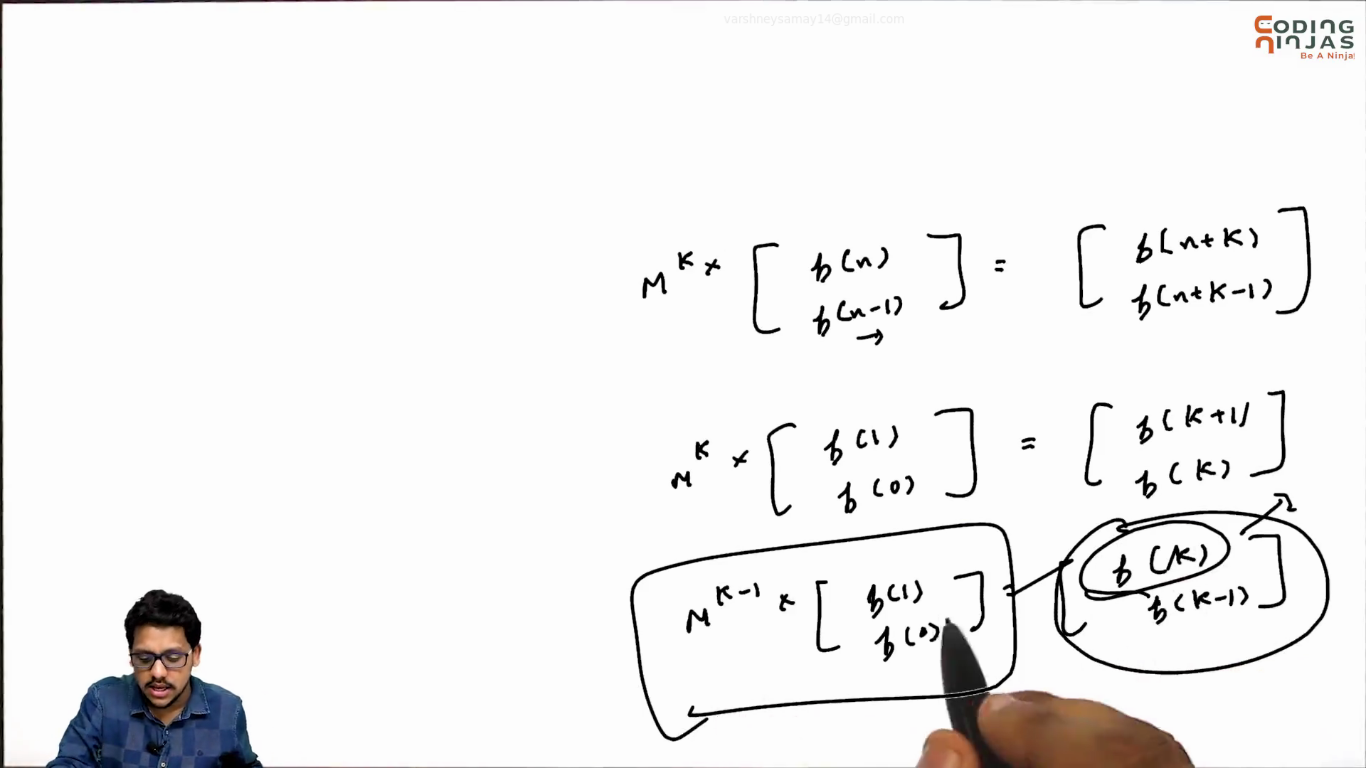 varshneysamay14@gmail.com
CODING
NINJAS
Be A Ninja!
M^K × [ f(n) ] = [ f(n+K) ]
[ f(n-1) ] [ f(n+K-1) ]
→
M^K × [ f(1) ] = [ f(K+1) ]
[ f(0) ] [ f(K) ]
M^K-1 × [ f(1) ] = [ f(K) ]
[ f(0) ] [ f(K-1) ]